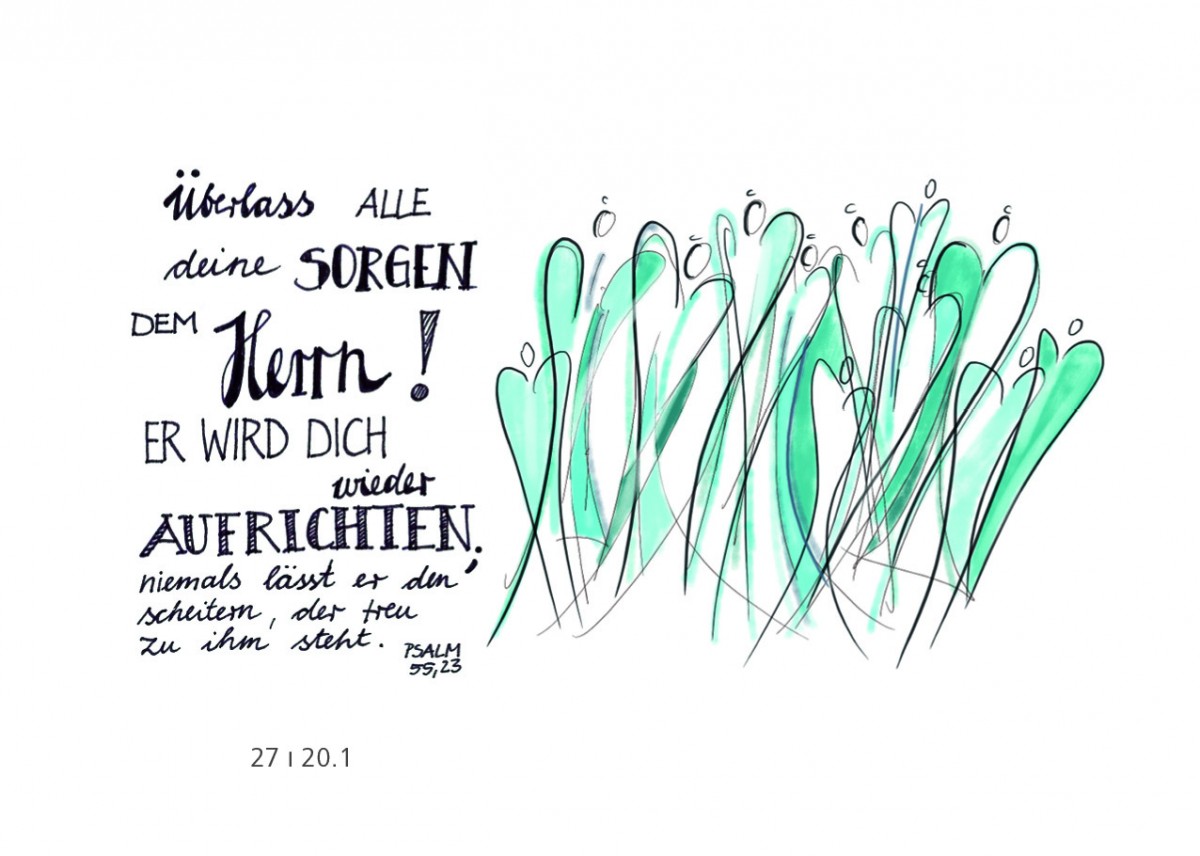 Überlass ALLE
deine SORGEN
DEM Herrn!
ER WIRD DICH
wieder
AUFRICHTEN,
niemals lässt er den
scheitern, der treu
zu ihm steht.
PSALM
55,23
27 ı 20.1